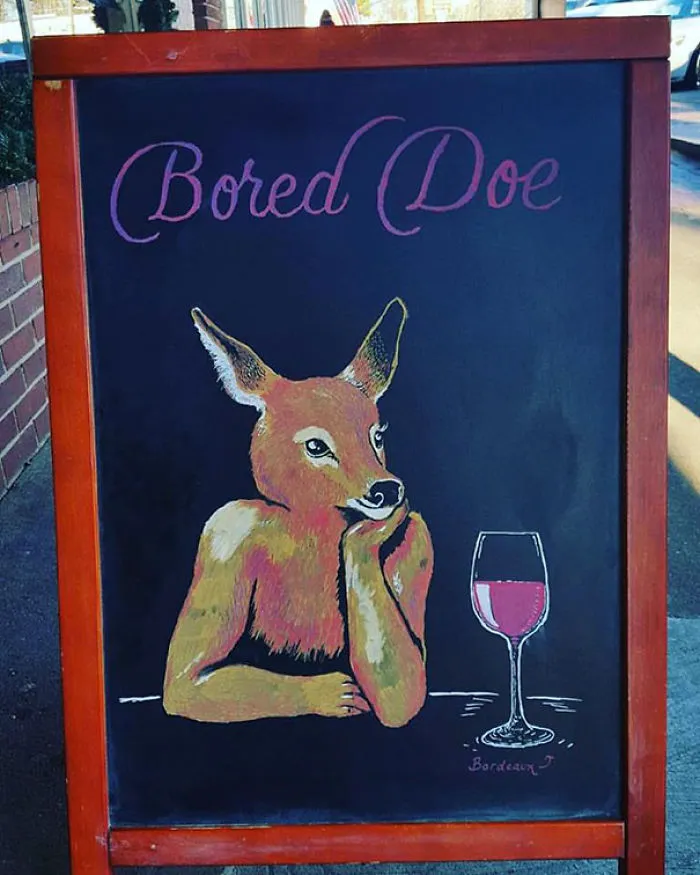 Bored Doe
Bordeaux